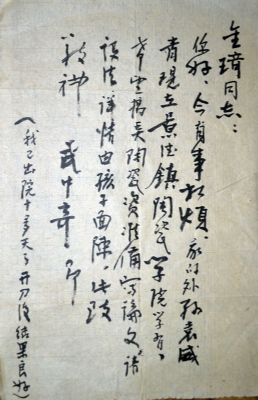 金琦同志：
你好、今有事相烦。我的外孙袁威
青现在景德镇陶瓷学院学习、
陶瓷资准备写论文、请
详情由孩子面陈。此致
敬礼
武中奇 即
（我已出院十多天了开刀后结果良好）